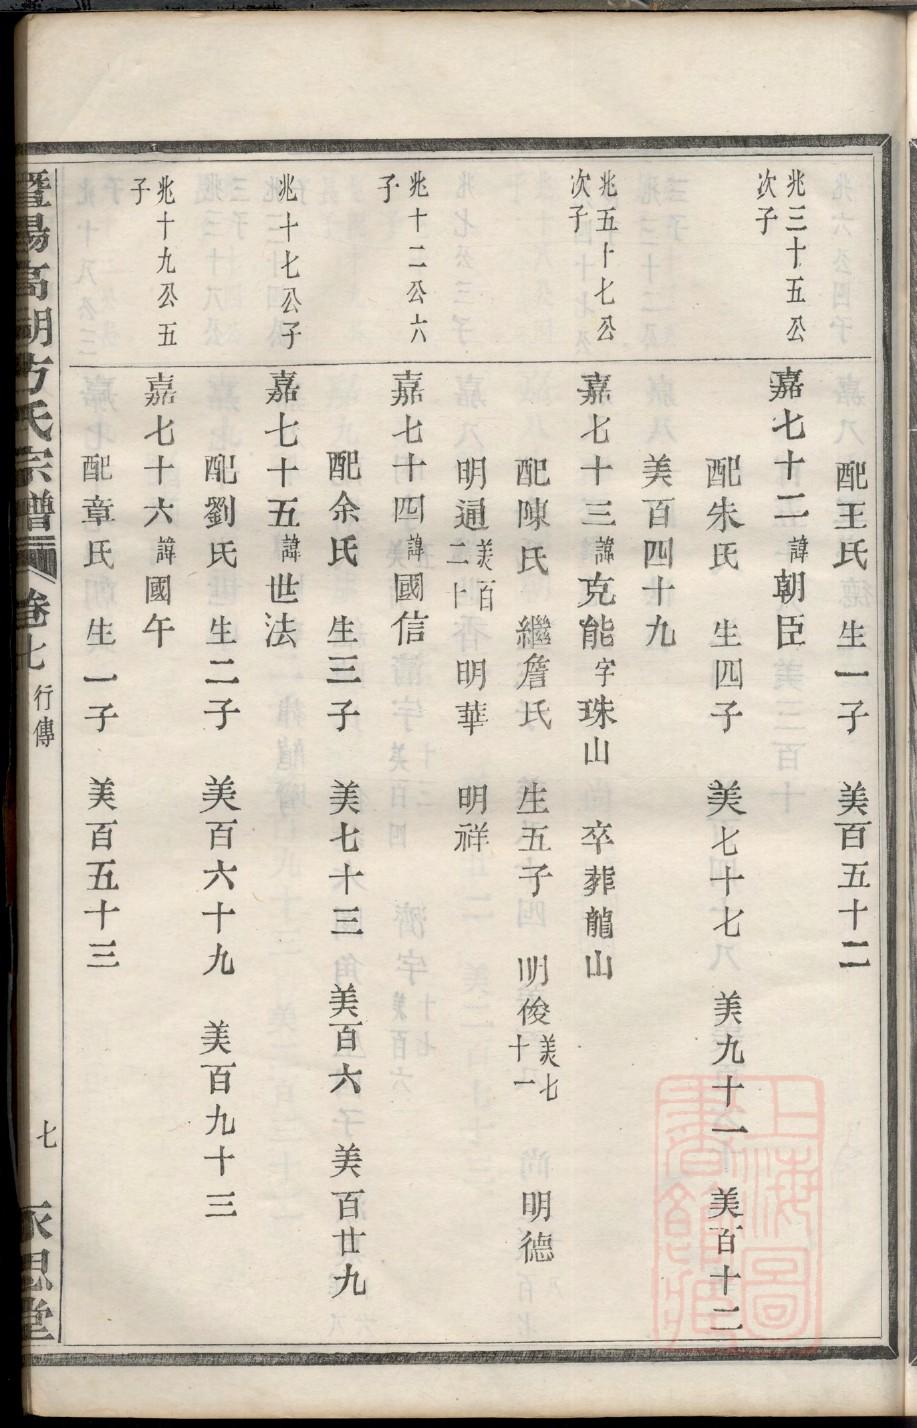 配王氏　生一子　美百五十二
兆三十五公次子
嘉七十二諱朝臣
配朱氏　生四子　美七十七　美九十一　美百十二
美百四十九
兆五十七公次子
嘉七十三諱克能字珠山　卒葬龍山
配陳氏　繼詹氏　生五子　明俊美七十一　明德
明通美百二十　明華　明祥
兆十二公六子
嘉七十四諱國信
配余氏　生三子　美七十三　美百六　美百廿九
兆十七公子
嘉七十五諱世法
配劉氏　生二子　美百六十九　美百九十三
兆十九公五子
嘉七十六諱國午
配章氏　生一子　美百五十三
暨陽高湖方氏宗譜　卷七　行傳　七　永思堂
上海圖書館藏